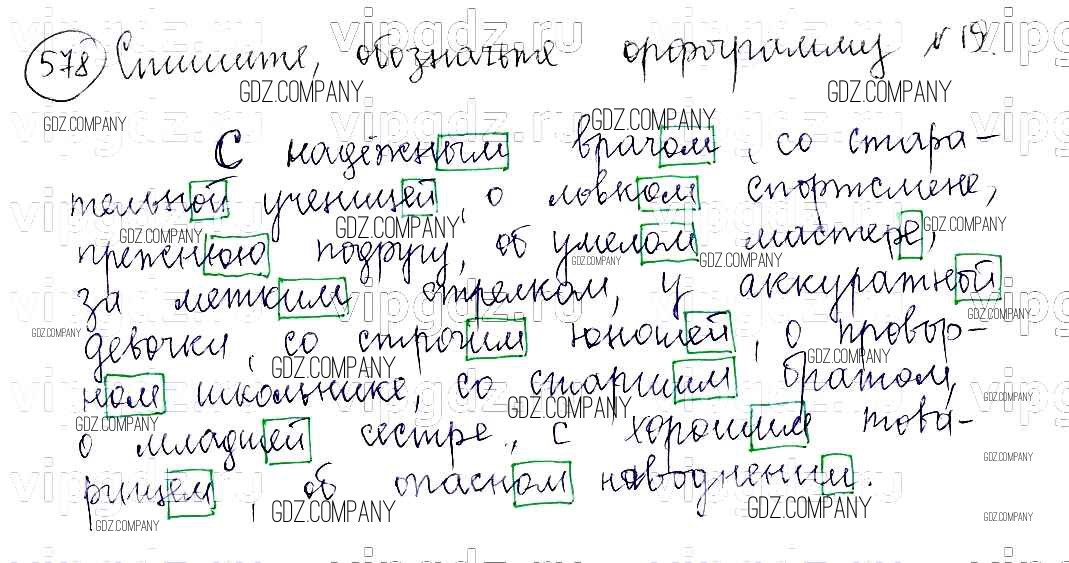 578 Спишите, обозначьте орфограмму N 19.
С надёжным врачом, со стара-
тельной ученицей, о ловком спортсмене,
прежнюю подругу, об умелом мастере,
за метким стрелком, у аккуратной
девочки, со строгим юношей, о провор-
ном школьнике, со старшим братом,
о младшей сестре, с хорошим това-
рищем, об опасном наводнении.
GDZ.COMPANY
vipgdz.ru